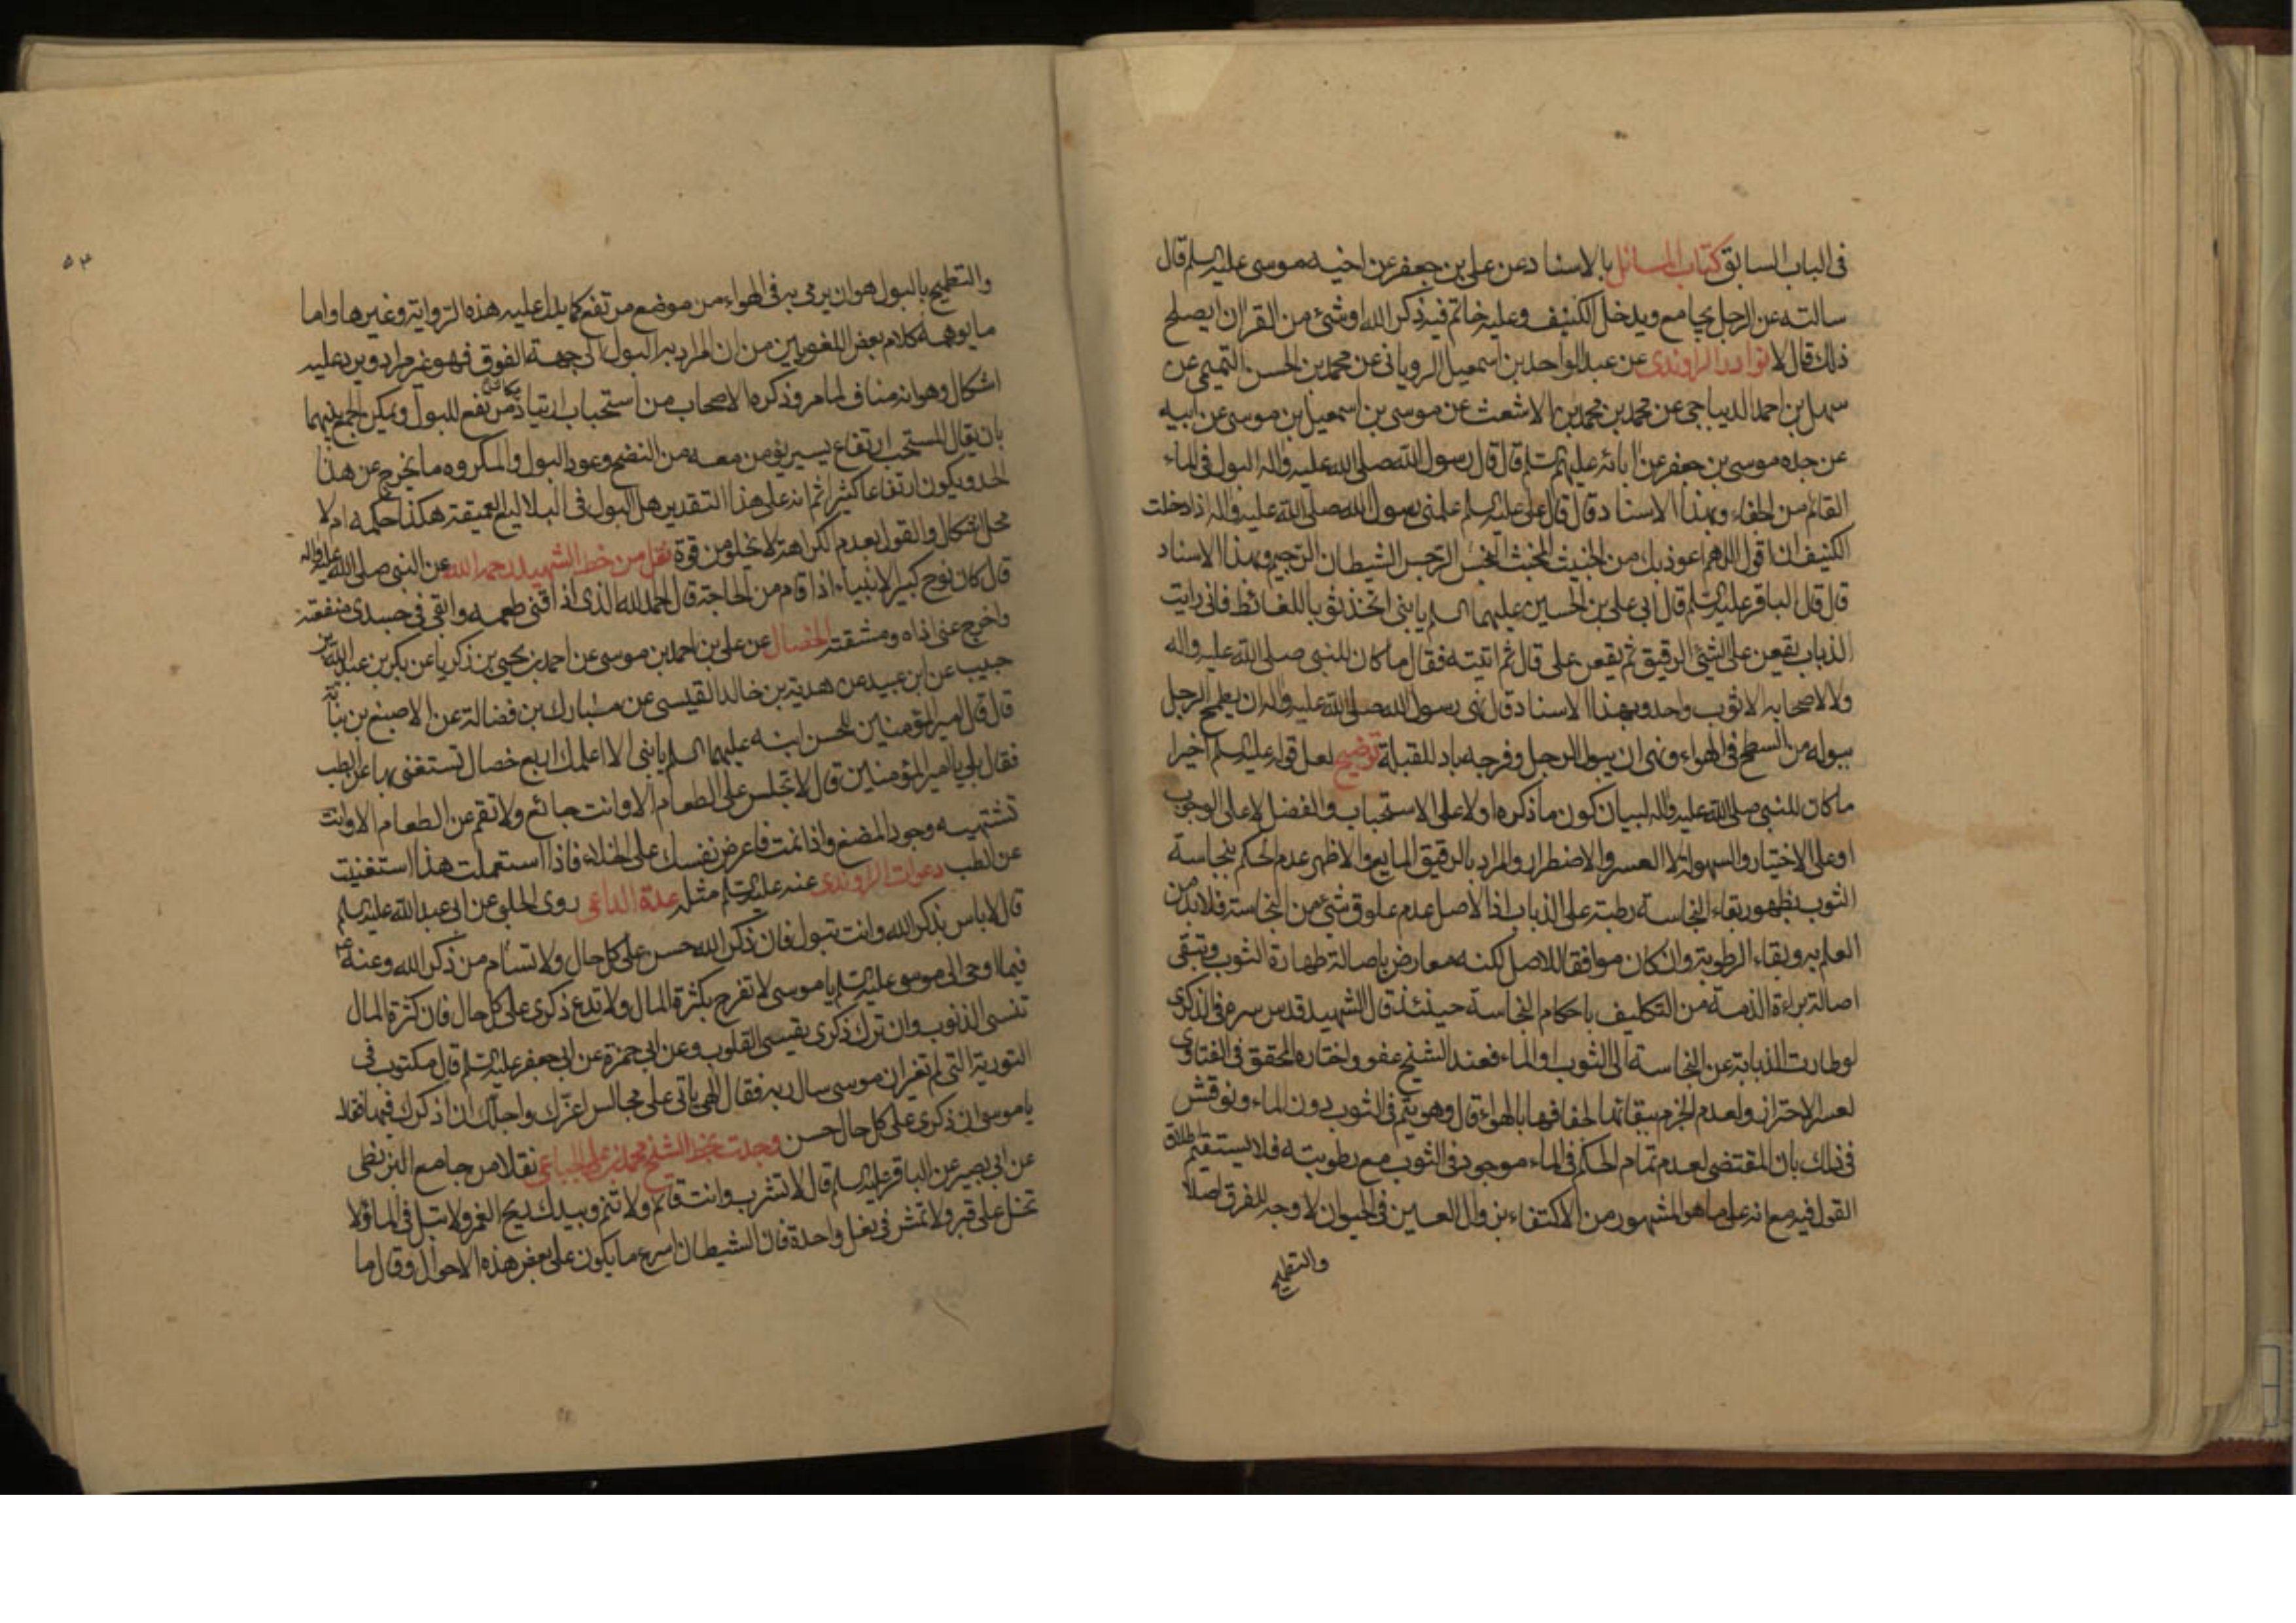 في الباب السابق كتاب المسائل بالاسناد عن علي بن جعفر عن اخيه موسى عليه السلم قال
سالته عن الرجل يجامع ويدخل الكنيف وعليه خاتم فيه ذكر الله او شئ من القران ايصلح
ذلك قال لا نوادر الراوندى عن عبد الواحد بن اسمعيل الروياني عن محمد بن الحسن التميمي عن
سهل بن احمد الديباجي عن محمد بن محمد بن الاشعث عن موسى بن اسمعيل بن موسى عن ابيه
عن جده موسى بن جعفر عن ابائه عليهم السلم قال قال رسول الله صلى الله عليه واله البول في الماء
القائم من الجفاء وبهذا الاسناد قال قال على عليه السلم علمني رسول الله صلى الله عليه واله اذا دخلت
الكنيف ان اقول اللهم اعوذ بك من الخبيث المخبث النجس الرجس الشيطان الرجيم وبهذا الاسناد
قال قال الباقر عليه السلم قال ابي علي بن الحسين عليهما السلم يا بني اتخذ ثوبا للغائظ فاني رايت
الذباب يقعن على الشئ الرقيق ثم يقعن على قال ثم اتيته فقال ما كان للنبي صلى الله عليه واله
ولا لاصحابه الا ثوب واحد وبهذا الاسناد قال نهى رسول الله صلى الله عليه واله ان يطمح الرجل
ببوله من السطح في الهواء ونهى ان يبول الرجل وفرجه باد للقبلة توضيح لعل قوله عليه السلم اخيرا
ما كان للنبي صلى الله عليه واله لبيان كون ما ذكره اولا على الاستحباب والفضل لا على الوجوب
او على الاختيار والسهولة لا العسر والاضطرار والمراد بالرقيق المايع والاظهر عدم الحكم بنجاسة
الثوب بظهور بقاء النجاسة رطبة على الذباب اذ الاصل عدم علوق شئ من النجاسة فلا بد من
العلم به وبقاء الرطوبة وان كان موافقا للاصل لكنه معارض باصالة طهارة الثوب وتبقى
اصالة براءة الذمة من التكليف باحكام النجاسة حينئذ قال الشهيد قدس سره في الذكرى
لو طارت الذبابة عن النجاسة الى الثوب او الماء فعند الشيخ عفو واختاره المحقق في الفتاوى
لعسر الاحتراز ولعدم الجزم ببقائها لجفافها بالهواء قال وهو يتم في الثوب دون الماء ونوقش
في ذلك بان المقتضى لعدم تمام الحكم في الماء موجود في الثوب مع رطوبته فلا يستقيم اطلاق
القول فيه مع انه على ما هو المشهور من الاكتفاء بزوال العين في الحيوان لا وجه للفرق اصلا
والتطميح
٥٣
والتطميح بالبول هو ان يرمى به في الهواء من موضع مرتفع كما يدل عليه هذه الرواية وغيرها واما
ما يوهمه كلام بعض اللغويين من ان المراد به البول الى جهة الفوق فهو غير مراد ويرد عليه
اشكال وهو انه مناف لما مر وذكره الاصحاب من استحباب ارتياد مكان مرتفع للبول ويمكن الجمع بينهما
بان يقال المستحب ارتفاع يسير يؤمن معه من النضح وعود البول والمكروه ما يخرج عن هذا
الحد ويكون ارتفاعا كثيرا ثم انه على هذا التقدير هل البول في البلاليع العميقة هكذا حكمه ام لا
محل اشكال والقول بعدم الكراهة لا يخلو من قوة نقل من خط الشهيد رحمه الله عن النبي صلى الله عليه واله
قال كان نوح كبير الانبياء اذا قام من الحاجة قال الحمد لله الذى اذاقنى طعمه وابقى في جسدى منفعته
واخرج عنى اذاه ومشقته الخصال عن علي بن احمد بن موسى عن احمد بن يحيى بن زكريا عن بكر بن عبد الله بن
حبيب عن ابن عبيد عن هدية بن خالد القيسى عن مبارك بن فضالة عن الاصبغ بن نباته
قال قال امير المؤمنين للحسن ابنه عليهما السلم يا بنى الا اعلمك اربع خصال تستغنى بها عن الطب
فقال بلى يا امير المؤمنين قال لا تجلس على الطعام الا وانت جائع ولا تقم عن الطعام الا وانت
تشتهيه وجود المضغ واذا نمت فاعرض نفسك على الخلاء فاذا استعملت هذا استغنيت
عن الطب دعوات الراوندى عنه عليه السلم مثله عدة الداعى روى الحلبي عن ابى عبد الله عليه السلم
قال لا باس بذكر الله وانت تبول فان ذكر الله حسن على كل حال ولا تسام من ذكر الله وعنه ع
فيما اوحى الى موسى عليه السلم يا موسى لا تفرح بكثرة المال ولا تدع ذكرى على كل حال فان كثرة المال
تنسى الذنوب وان ترك ذكرى يقسى القلوب وعن ابى حمزة عن ابى جعفر عليه السلم قال مكتوب في
التورية التى لم تغير ان موسى سال ربه فقال الهى ياتى على مجالس اعزك واجلك ان اذكرك فيها فقال
يا موسى ان ذكرى على كل حال حسن وجدت بخط الشيخ محمد بن علي الجباعى نقلا من جامع البزنطى
عن ابى بصير عن الباقر عليه السلم قال لا تشرب وانت قائم ولا تنم وبيدك ريح الغمر ولا تبل في الماء ولا
تخل على قبر ولا تمش في نعل واحدة فان الشيطان اسرع ما يكون على بعض هذه الاحوال وقال ما